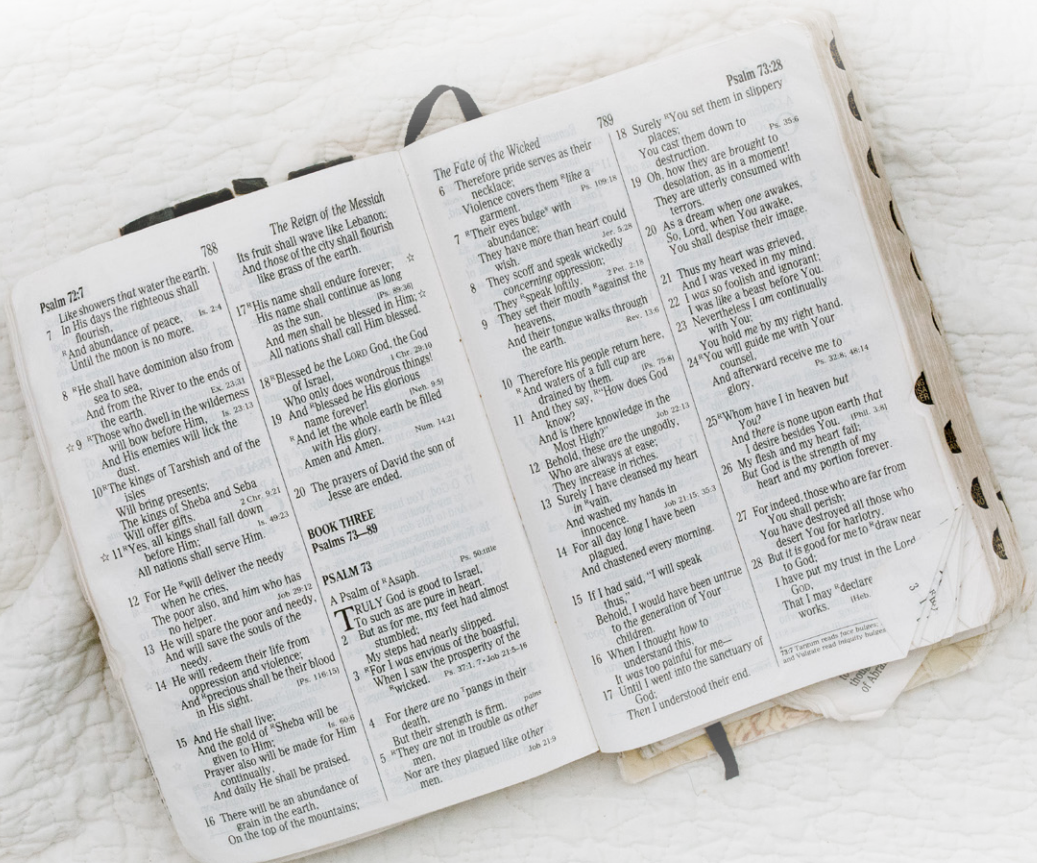 Psalm 72:7
788
The Reign of the Messiah
Like showers that water the earth.
7 In His days the righteous shall
flourish,
And abundance of peace,
Is. 2:4
Until the moon is no more.
8 He shall have dominion also from
sea to sea,
And from the River to the ends of
the earth.
Ex. 23:31
☆9 Those who dwell in the wilderness
will bow before Him,
Is. 23:13
And His enemies will lick the
dust.
10 The kings of Tarshish and of the
isles
Will bring presents;
The kings of Sheba and Seba
Will offer gifts.
2 Chr. 9:21
☆11 Yes, all kings shall fall down
before Him;
Is. 49:23
All nations shall serve Him.
12 For He will deliver the needy
when he cries,
The poor also, and him who has
no helper.
Job 29:12
13 He will spare the poor and needy,
And will save the souls of the
needy.
14 He will redeem their life from
oppression and violence;
And precious shall be their blood
in His sight.
[Ps. 116:15]
15 And He shall live;
And the gold of Sheba will be
given to Him;
Is. 60:6
Prayer also will be made for Him
continually,
And daily He shall be praised.
16 There will be an abundance of
grain in the earth,
On the top of the mountains;
Its fruit shall wave like Lebanon;
And those of the city shall flourish
like grass of the earth.
17 His name shall endure forever;
☆
His name shall continue as long
as the sun.
[Ps. 89:36]
And men shall be blessed in Him;☆
All nations shall call Him blessed.
18 Blessed be the LORD God, the God
of Israel,
1 Chr. 29:10
Who only does wondrous things!
19 And blessed be His glorious
name forever!
[Neh. 9:5]
And let the whole earth be filled
with His glory.
Num. 14:21
Amen and Amen.
20 The prayers of David the son of
Jesse are ended.
BOOK THREE
Psalms 73—89
PSALM 73
A Psalm of Asaph.
Ps. 50:title
TRULY God is good to Israel,
To such as are pure in heart.
2 But as for me, my feet had almost
stumbled;
My steps had nearly slipped.
3 For I was envious of the boastful,
When I saw the prosperity of the
wicked.
Ps. 37:1, 7 • Job 21:5–16
4 For there are no pangs in their
death,
pains
But their strength is firm.
5 They are not in trouble as other
men,
Nor are they plagued like other
men.
Job 21:9
The Fate of the Wicked
789
Psalm 73:28
6 Therefore pride serves as their
necklace;
Violence covers them like a
garment.
Ps. 109:18
7 Their eyes bulge with
abundance;
They have more than heart could
wish.
Jer. 5:28
8 They scoff and speak wickedly
concerning oppression;
They speak loftily.
2 Pet. 2:18
9 They set their mouth against the
heavens,
And their tongue walks through
the earth.
Rev. 13:6
10 Therefore his people return here,
And waters of a full cup are
drained by them.
[Ps. 75:8]
11 And they say, "How does God
know?
And is there knowledge in the
Most High?"
Job 22:13
12 Behold, these are the ungodly,
Who are always at ease;
They increase in riches.
13 Surely I have cleansed my heart
in vain,
And washed my hands in
innocence.
Job 21:15; 35:3
14 For all day long I have been
plagued,
And chastened every morning.
15 If I had said, "I will speak
thus,"
Behold, I would have been untrue
to the generation of Your
children.
16 When I thought how to
understand this,
It was too painful for me—
17 Until I went into the sanctuary of
God;
Then I understood their end.
18 Surely You set them in slippery
places;
You cast them down to
destruction.
Ps. 35:6
19 Oh, how they are brought to
desolation, as in a moment!
They are utterly consumed with
terrors.
20 As a dream when one awakes,
So, Lord, when You awake,
You shall despise their image.
21 Thus my heart was grieved,
And I was vexed in my mind.
22 I was so foolish and ignorant;
I was like a beast before You.
23 Nevertheless I am continually
with You;
You hold me by my right hand.
24 You will guide me with Your
counsel,
And afterward receive me to
glory.
Ps. 32:8; 48:14
25 Whom have I in heaven but
You?
And there is none upon earth that
I desire besides You.
[Phil. 3:8]
26 My flesh and my heart fail;
But God is the strength of my
heart and my portion forever.
27 For indeed, those who are far from
You shall perish;
You have destroyed all those who
desert You for harlotry.
28 But it is good for me to draw near
to God;
I have put my trust in the Lord
GOD,
That I may declare
works.
[Heb.
73:7 Targum reads face bulges;
and Vulgate read iniquity bulges